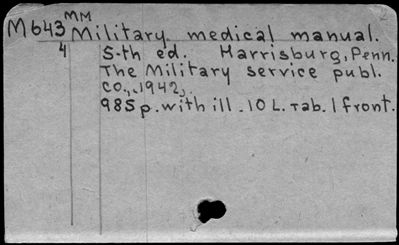 MM
M643 Military medical manual.
4 5-th ed. Harrisburg, Penn.
The Military service publ.
co., 1942,.
985 p. with ill. 10 L. tab. 1 front.